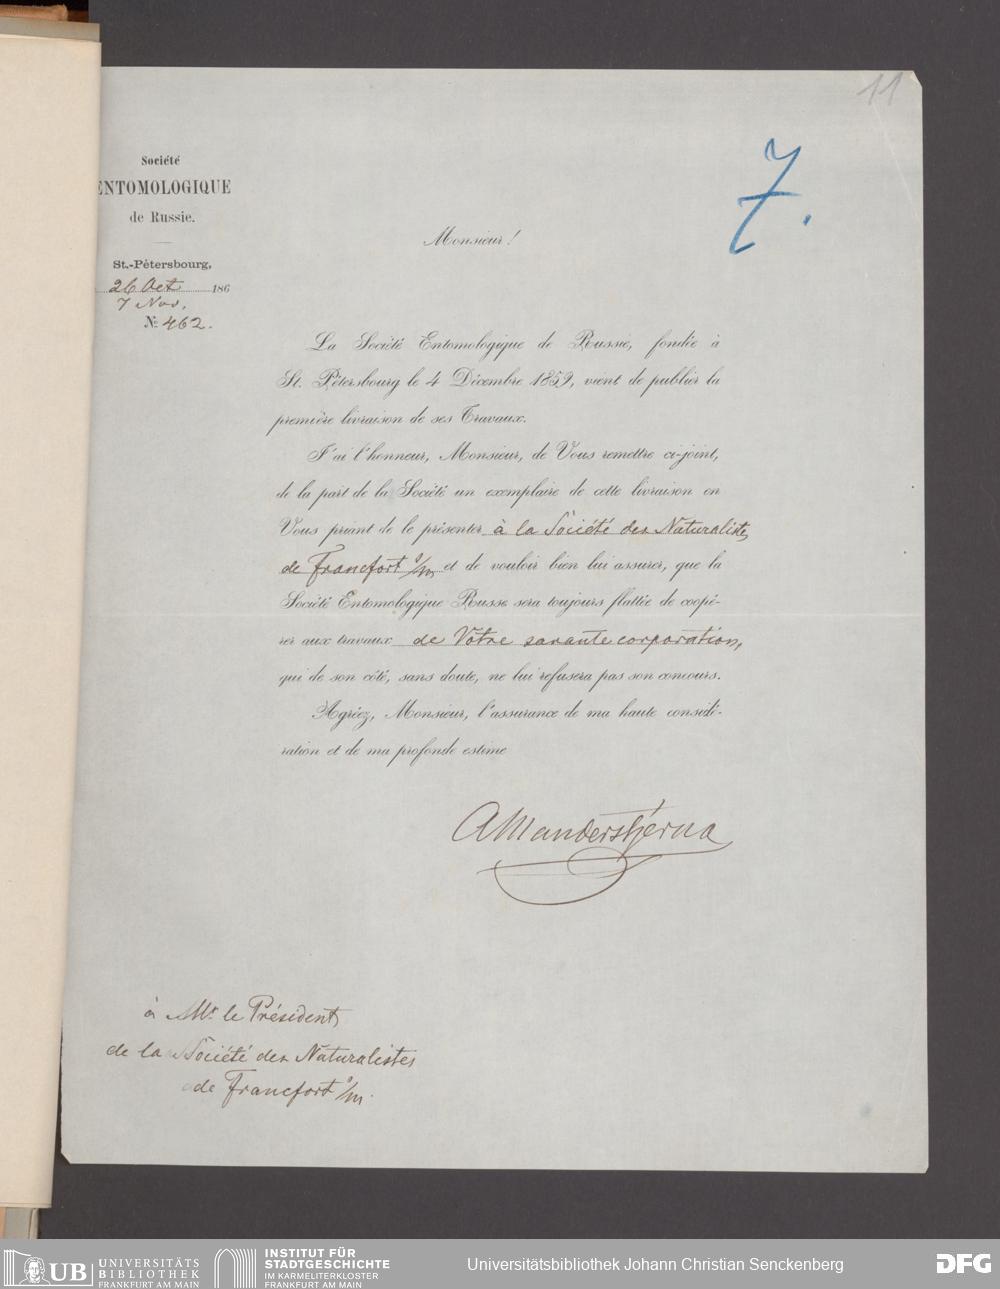 11
7.
Société
ENTOMOLOGIQUE
de Russie.
St.-Pétersbourg,
26 Oct 186
7 Nov.
№ 462.
Monsieur!
La Société Entomologique de Russie, fondée à
St. Pétersbourg le 4 Décembre 1859, vient de publier la
première livraison de ses Travaux.
J'ai l'honneur, Monsieur, de Vous remettre ci-joint,
de la part de la Société un exemplaire de cette livraison en
Vous priant de le présenter à la Société des Naturalistes
de Francfort s/m et de vouloir bien lui assurer, que la
Société Entomologique Russe sera toujours flattée de coopé-
rer aux travaux de Votre savante corporation,
qui de son côté, sans doute, ne lui refusera pas son concours.
Agréez, Monsieur, l'assurance de ma haute considé-
ration et de ma profonde estime
AManderstjerna
à Mr. le Président
de la Société des Naturalistes
de Francfort s/m.
UB UNIVERSITÄTS
BIBLIOTHEK
FRANKFURT AM MAIN
INSTITUT FÜR
STADTGESCHICHTE
IM KARMELITERKLOSTER
FRANKFURT AM MAIN
Universitätsbibliothek Johann Christian Senckenberg
DFG